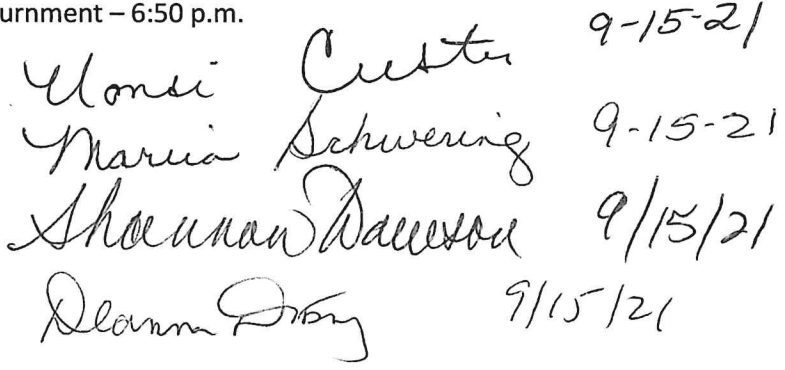 urnment – 6:50 p.m.
Custer 9-15-21
Marcia Schwering 9-15-21
Shannon Dawson 9/15/21
Deanna 9/15/21